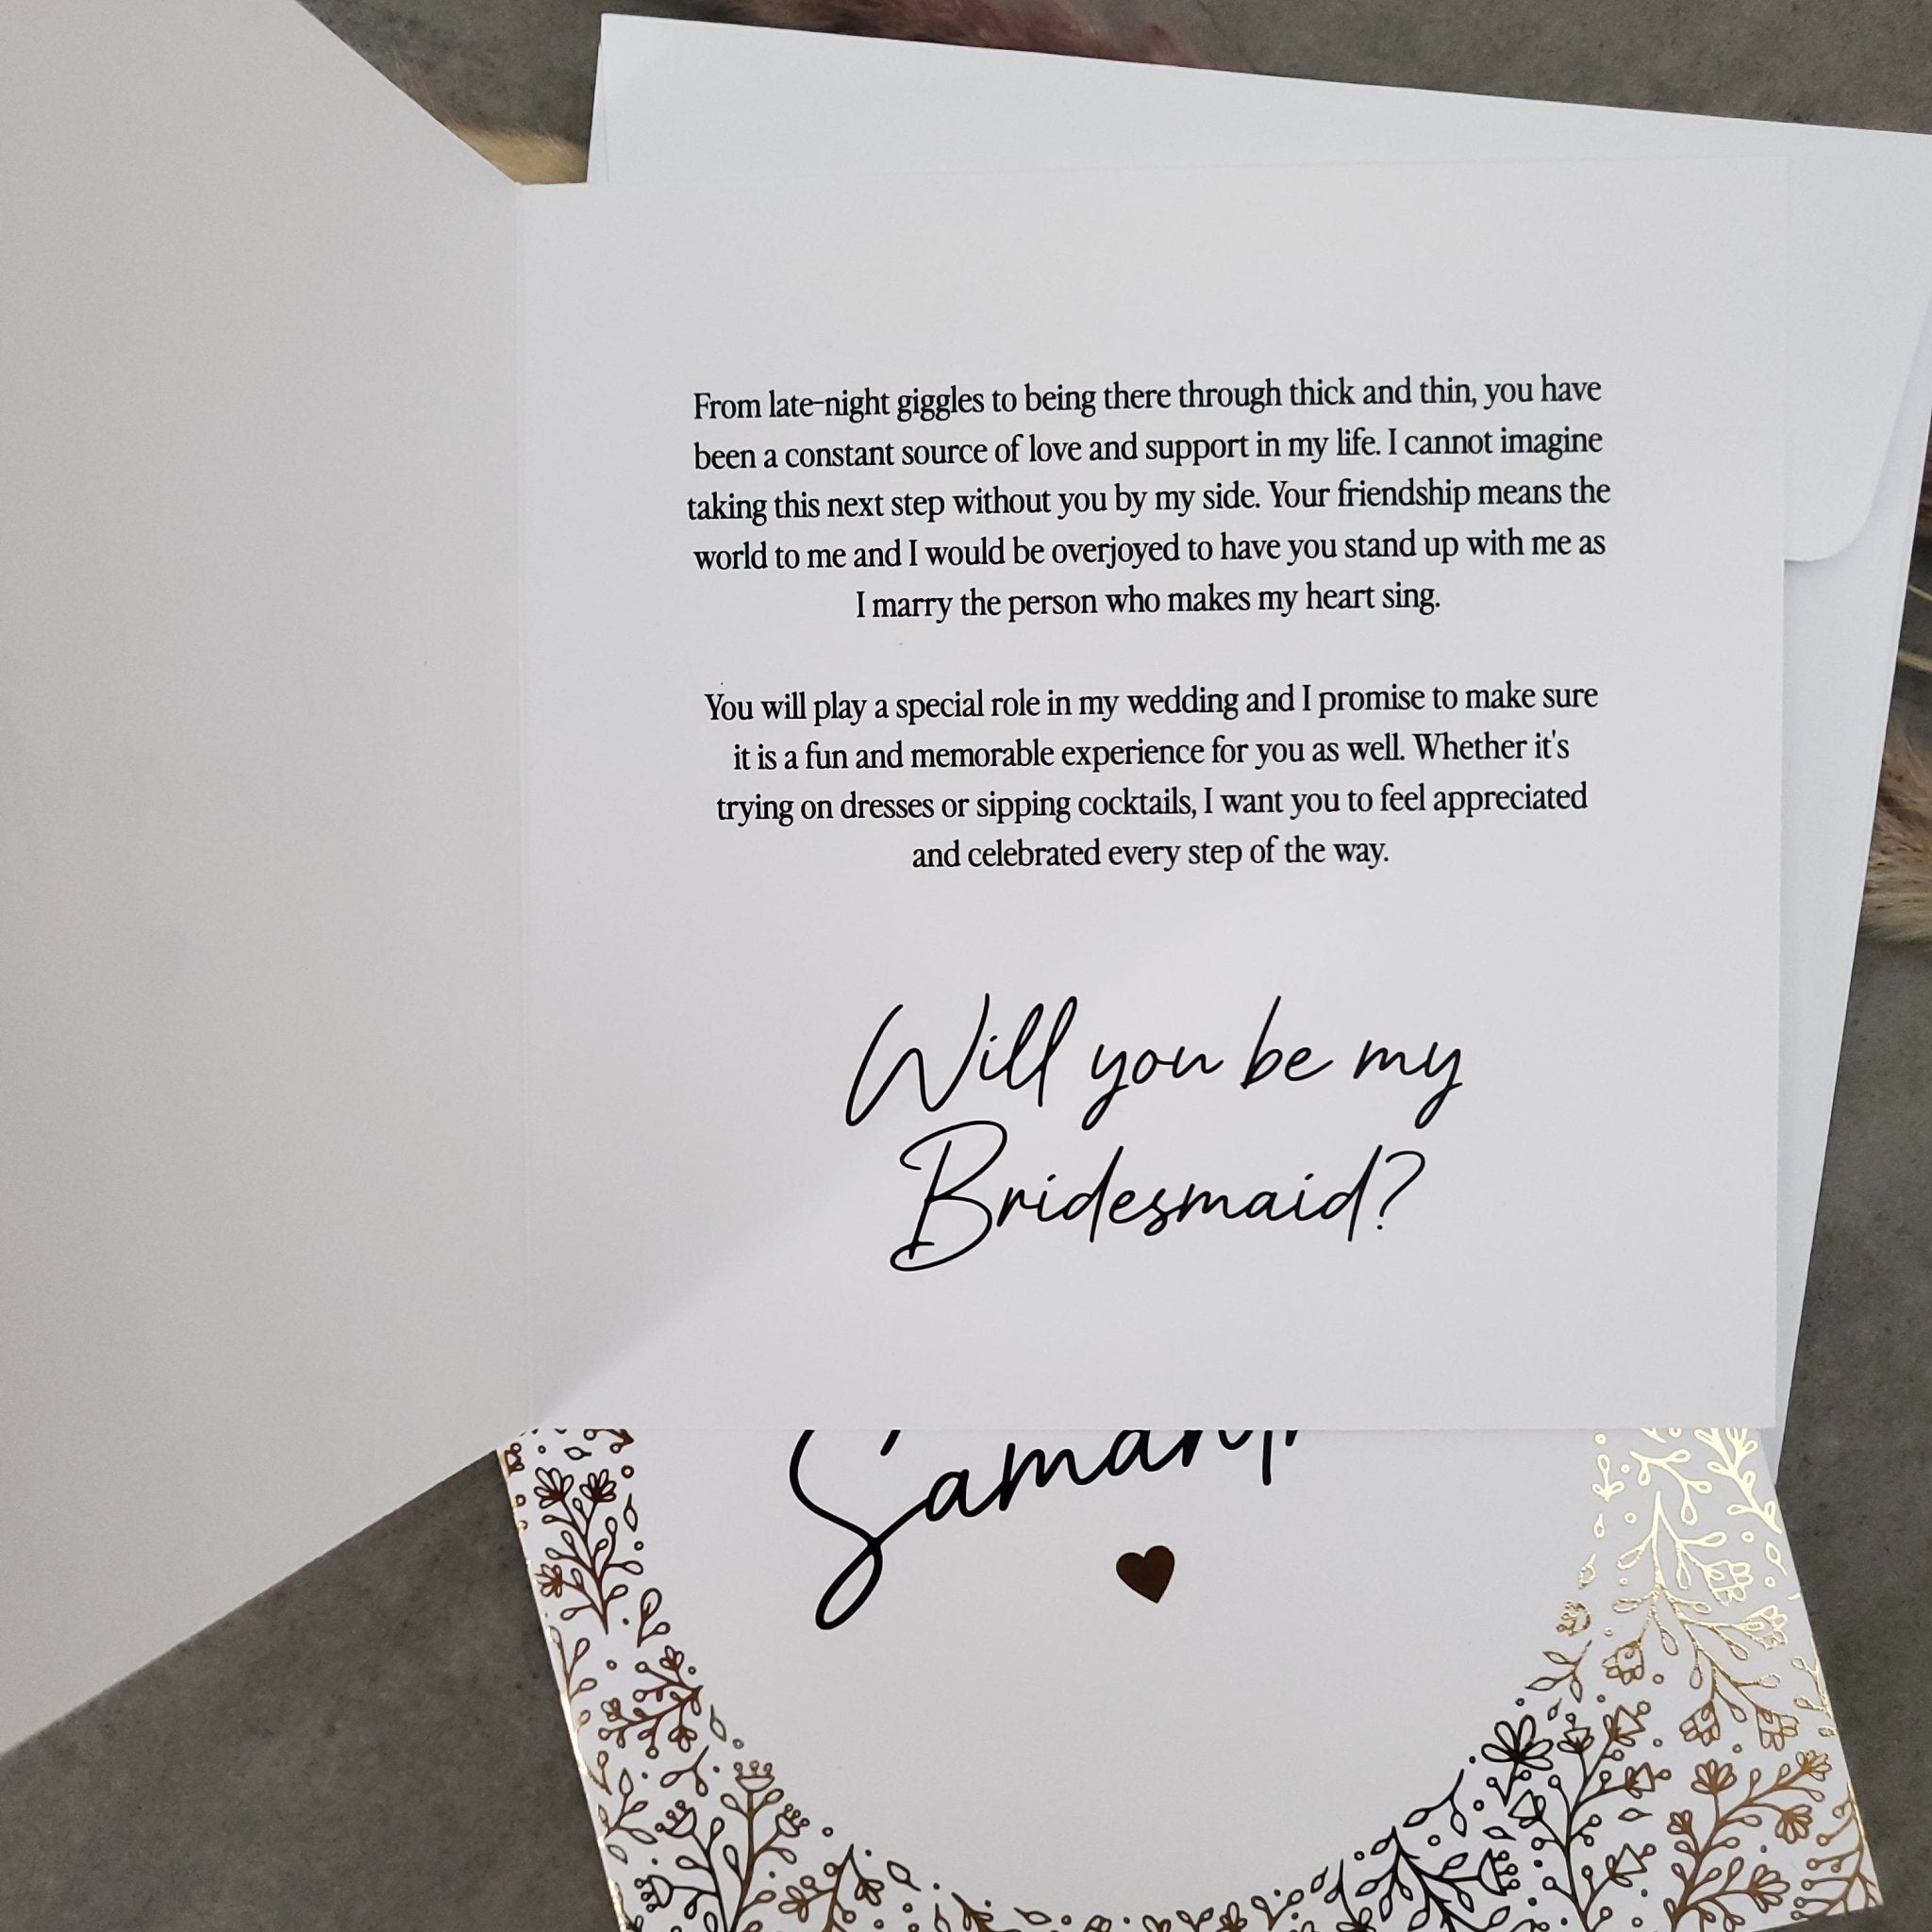 From late-night giggles to being there through thick and thin, you have
been a constant source of love and support in my life. I cannot imagine
taking this next step without you by my side. Your friendship means the
world to me and I would be overjoyed to have you stand up with me as
I marry the person who makes my heart sing.
You will play a special role in my wedding and I promise to make sure
it is a fun and memorable experience for you as well. Whether it's
trying on dresses or sipping cocktails, I want you to feel appreciated
and celebrated every step of the way.
Will you be my
Bridesmaid?